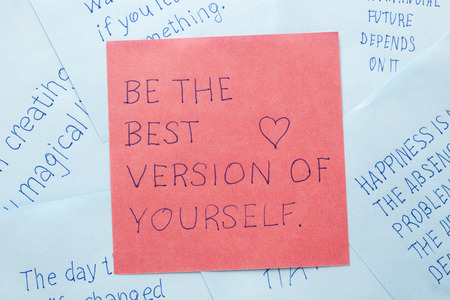 BE THE
BEST
VERSION OF
YOURSELF.
if you le
something.
FUTURE
DEPENDS
ON IT
creating
magical li
HAPPINESS IS
THE ABSEN
PROBLEM
THE
The day t
changed